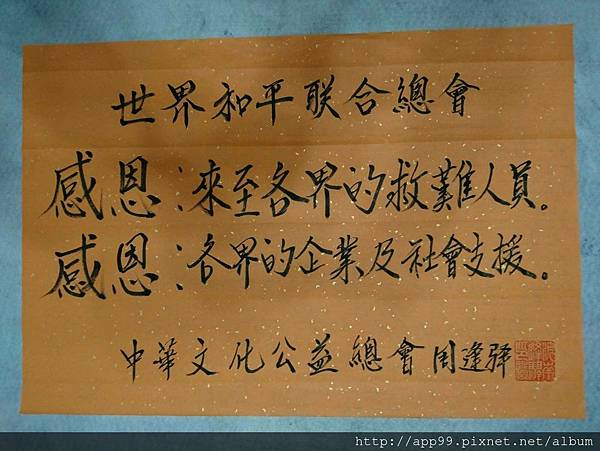 世界和平联合總會
感恩：來至各界的救難人員。
感恩：各界的企業及社會支援。
中華文化公益總會 周逢驛
http://app99.pixnet.net/album